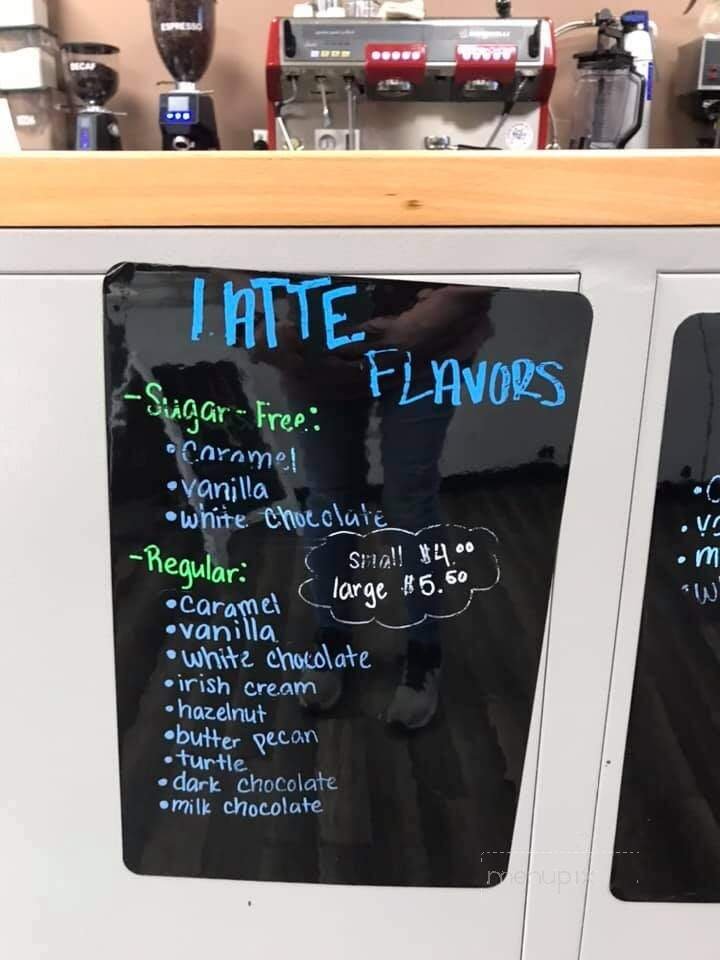 DECAF
ESPRESSO
LATTE
FLAVORS
-Sugar-Free:
•Caramel
•vanilla
•white chocolate
-Regular:
small $4.00
large $5.50
•caramel
•vanilla
•white chocolate
•irish cream
•hazelnut
•butter pecan
•turtle
•dark chocolate
•milk chocolate
menupix